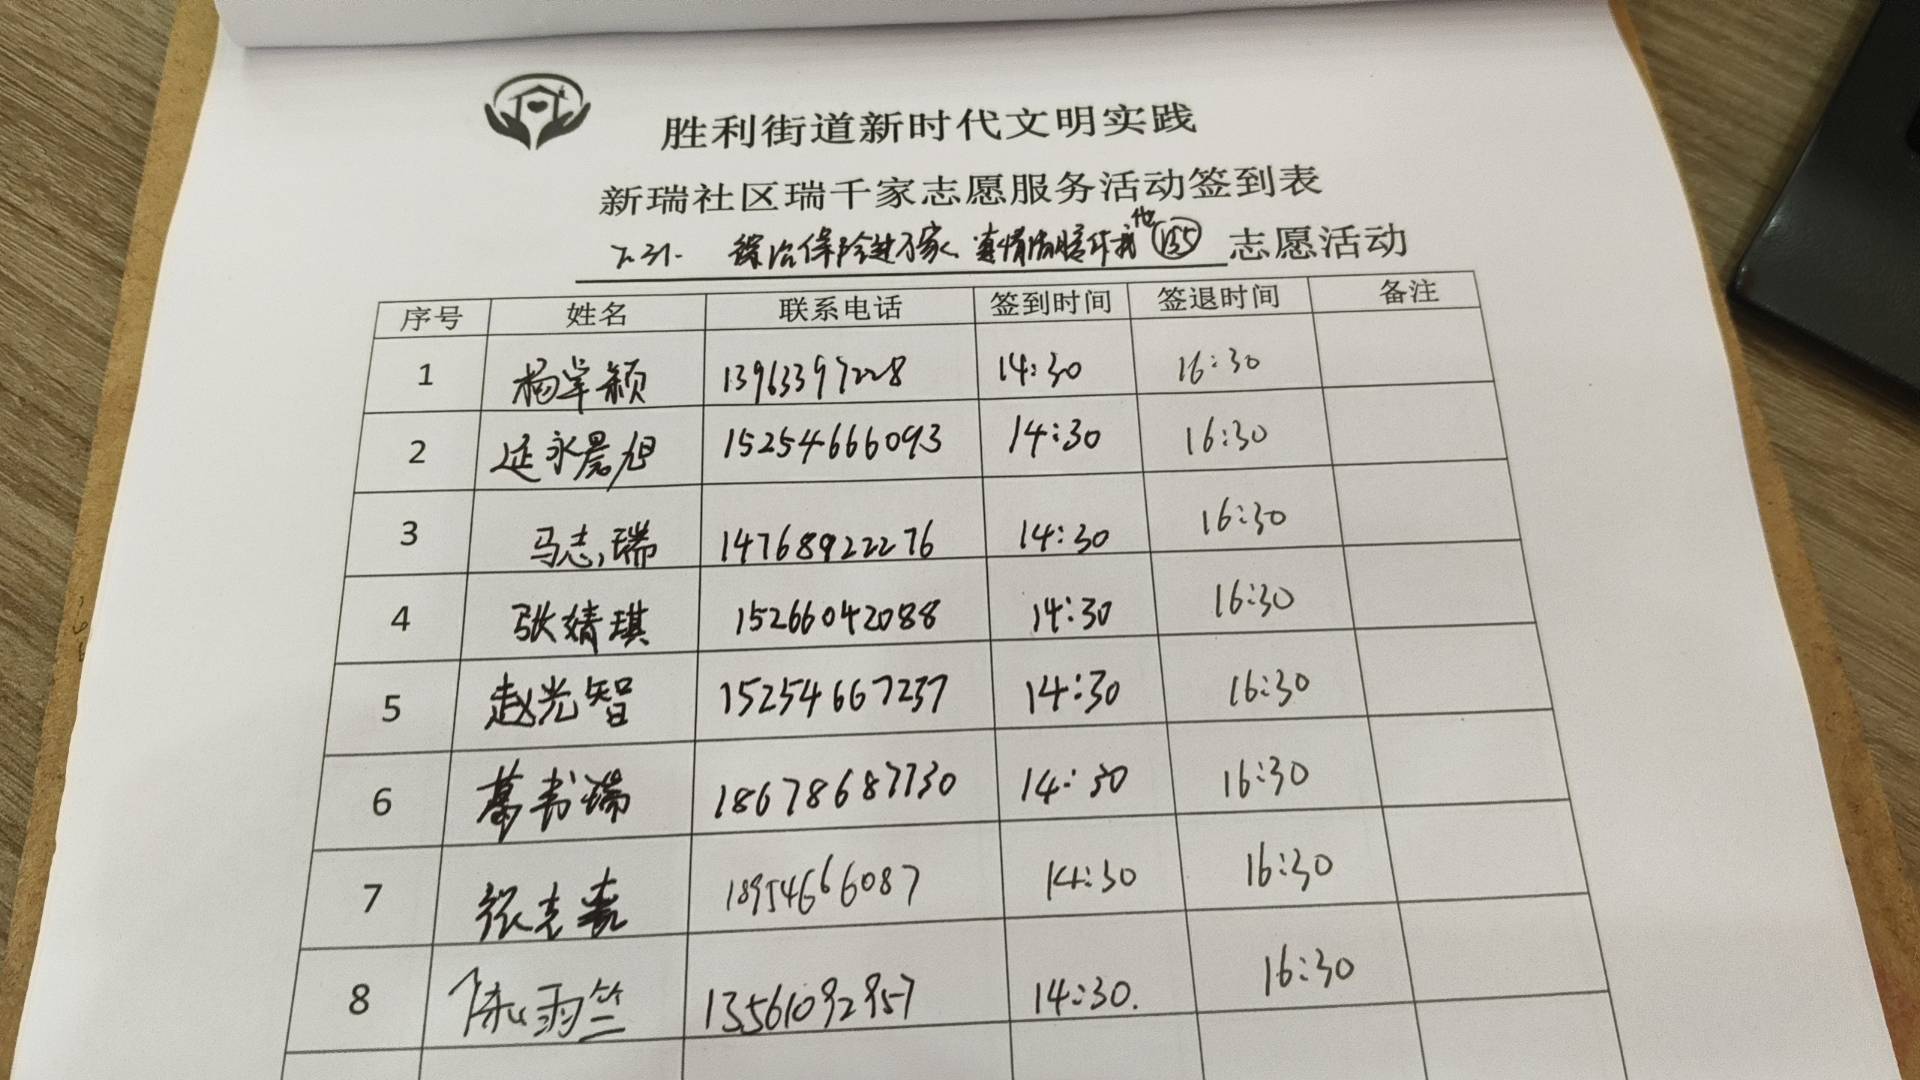 胜利街道新时代文明实践
新瑞社区瑞千家志愿服务活动签到表
7.31. 综治保险进万家 志愿活动
序号 姓名 联系电话 签到时间 签退时间 备注
1 杨 颖 13963397228 14:30 16:30
2 延永晨旭 15254666093 14:30 16:30
3 马志瑞 14768922276 14:30 16:30
4 张婧琪 15266042088 14:30 16:30
5 赵光智 15254667237 14:30 16:30
6 葛书瑞 18678687730 14:30 16:30
7 张志 18954666087 14:30 16:30
8 陈雨竺 13561092957 14:30. 16:30